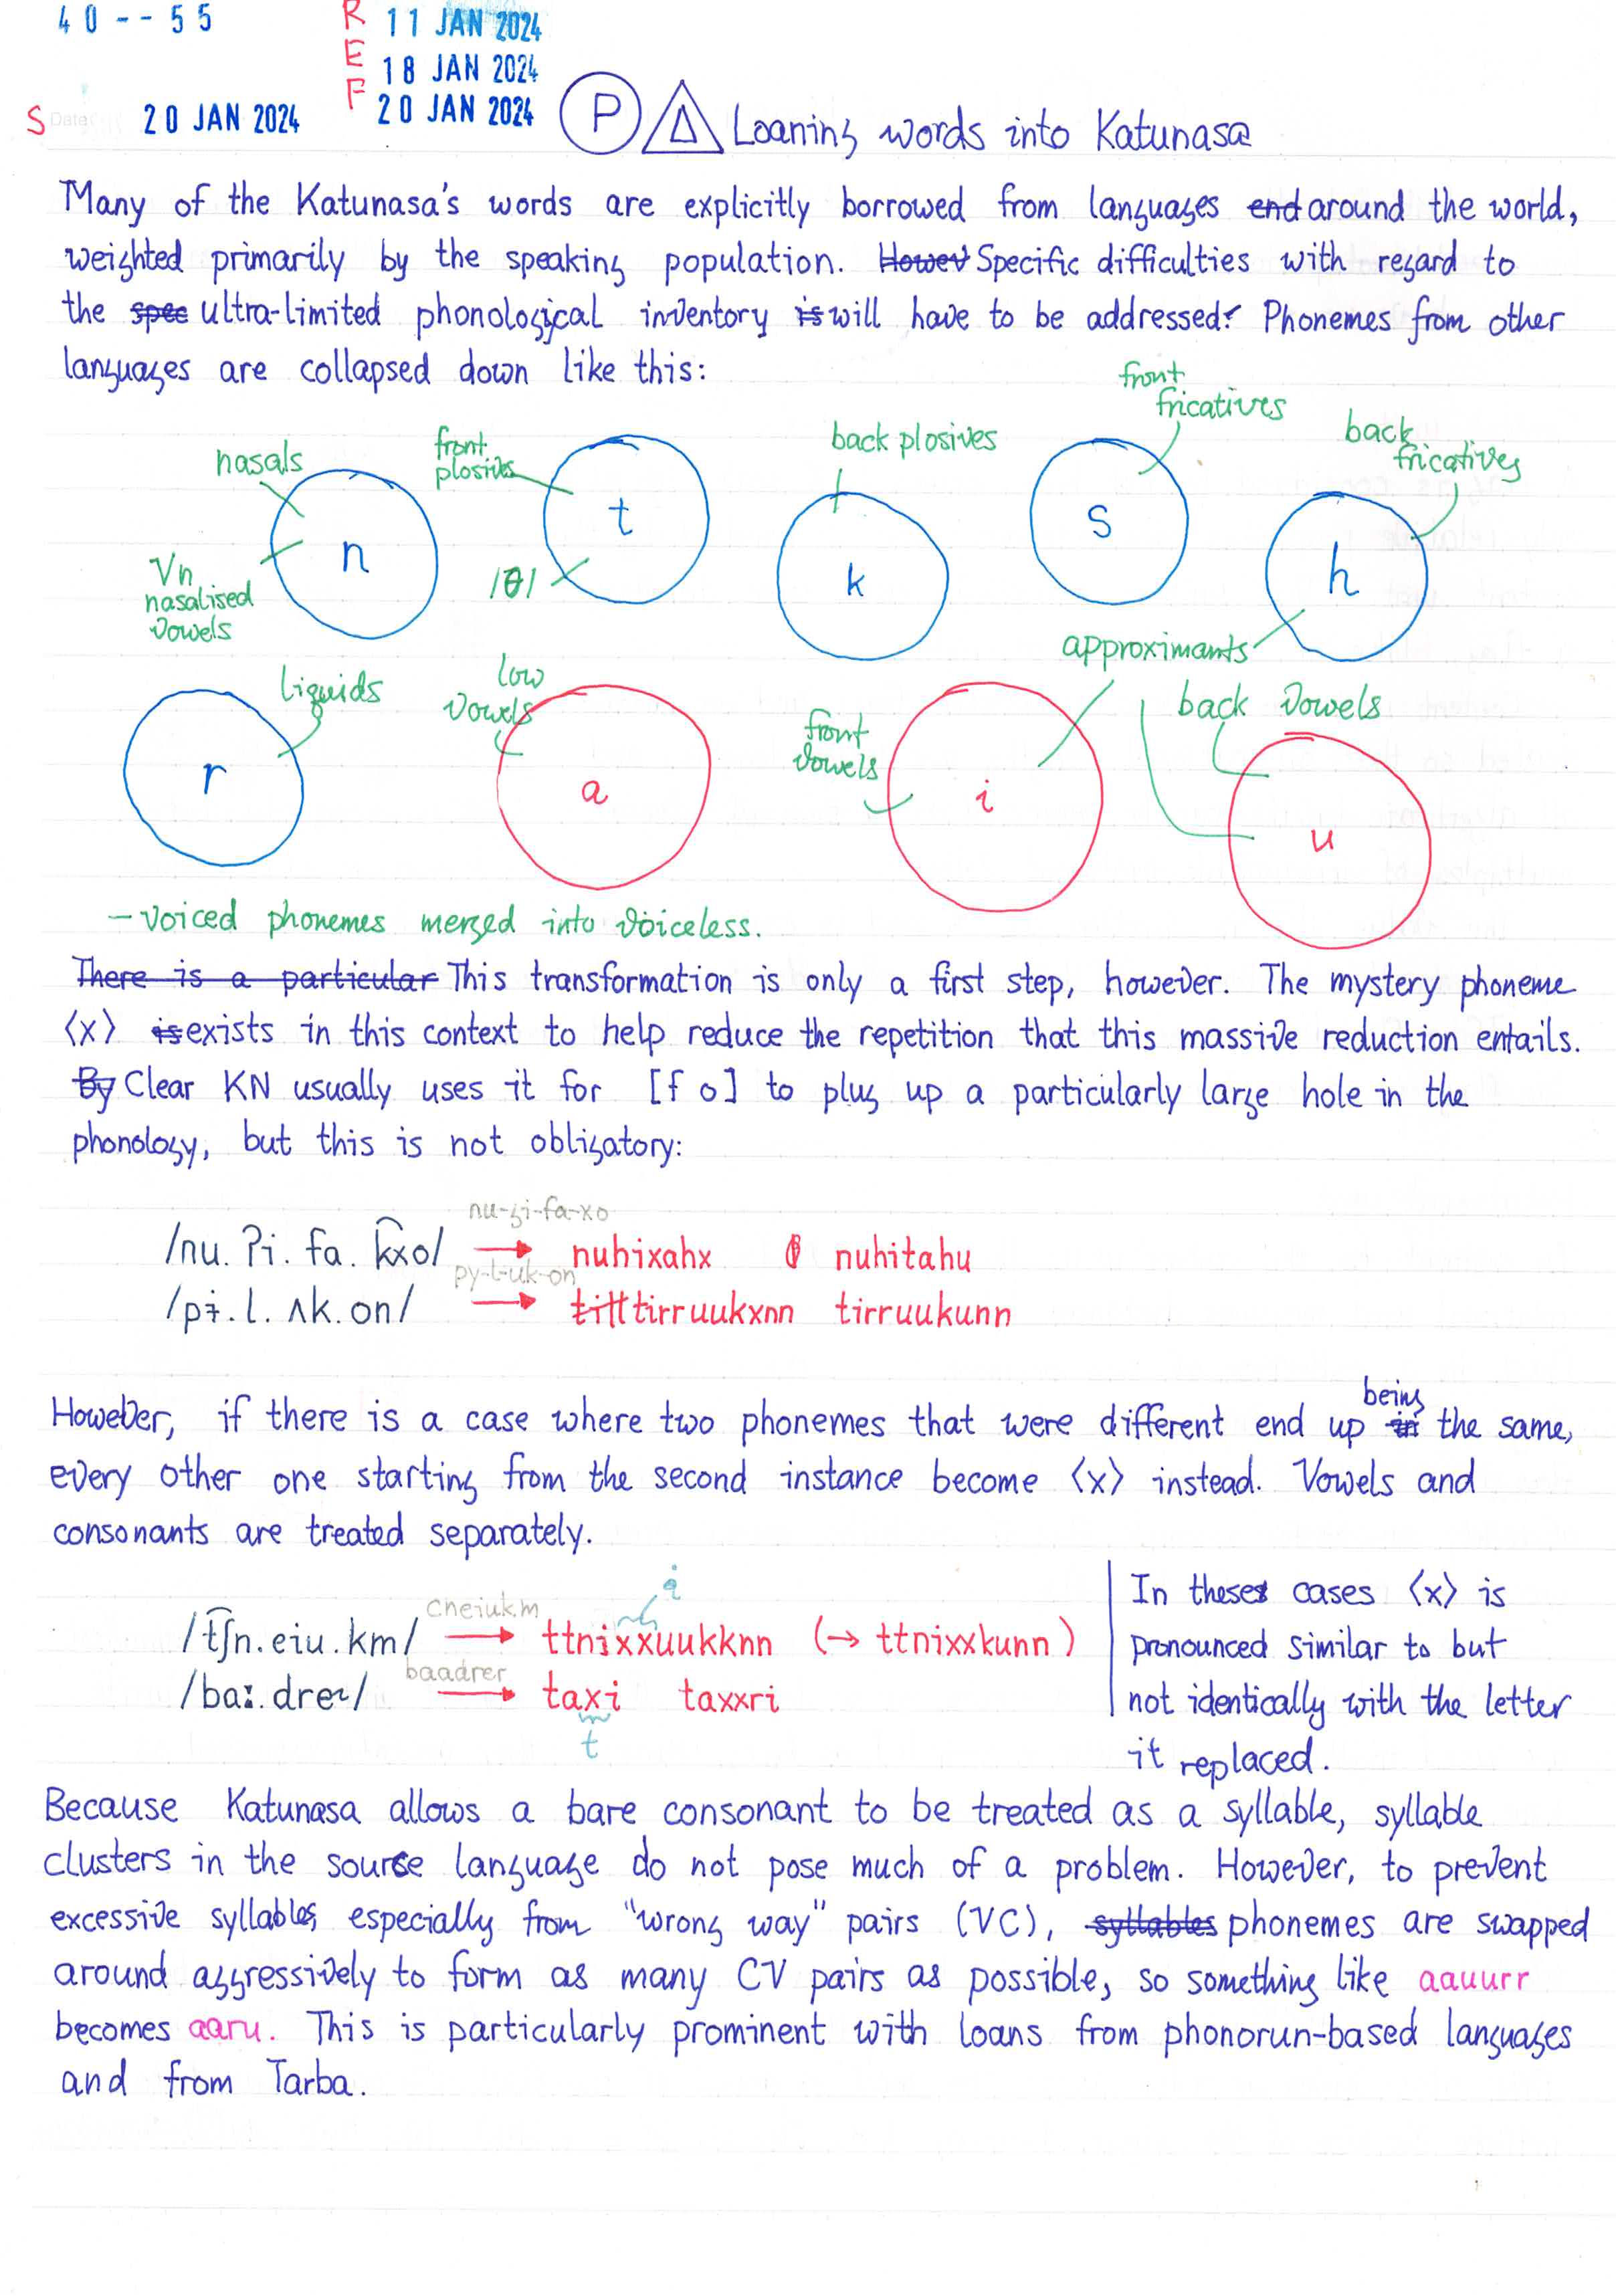 40--55
REF
11 JAN 2024
18 JAN 2024
20 JAN 2024
S Date: 20 JAN 2024
P Δ Loaning words into Katunasa
Many of the Katunasa's words are explicitly borrowed from languages end around the world,
weighted primarily by the speaking population. Howev Specific difficulties with regard to
the spec ultra-limited phonological inventory is will have to be addressed. Phonemes from other
languages are collapsed down like this:
nasals
Vn
nasalised
vowels
n
front
plosives
/θ/
t
back plosives
k
front
fricatives
s
back
fricatives
h
approximants
liquids
r
low
vowels
a
front
vowels
i
back vowels
u
- voiced phonemes merged into voiceless.
There is a particular This transformation is only a first step, however. The mystery phoneme
⟨x⟩ is exists in this context to help reduce the repetition that this massive reduction entails.
By Clear KN usually uses it for [f o] to plug up a particularly large hole in the
phonology, but this is not obligatory:
nu-gi-fa-xo
/nu. ʔi. fa. k͡xo/ → nuhixahx nuhitahu
py-l-uk-on
/pɨ. l. ʌk. on/ → titt tirruukxnn tirruukunn
However, if there is a case where two phonemes that were different end up in being the same,
every other one starting from the second instance become ⟨x⟩ instead. Vowels and
consonants are treated separately.
i
cneiuk.m
/t͡ʃn.eiu.km/ → ttnixxuukknn (→ ttnixxkunn)
baadrer
/baː.dreɹ/ → taxi taxxri
t
In these cases ⟨x⟩ is
pronounced similar to but
not identically with the letter
it replaced.
Because Katunasa allows a bare consonant to be treated as a syllable, syllable
clusters in the source language do not pose much of a problem. However, to prevent
excessive syllables, especially from "wrong way" pairs (VC), syllables phonemes are swapped
around aggressively to form as many CV pairs as possible, so something like aauurr
becomes aaru. This is particularly prominent with loans from phonorun-based languages
and from Tarba.